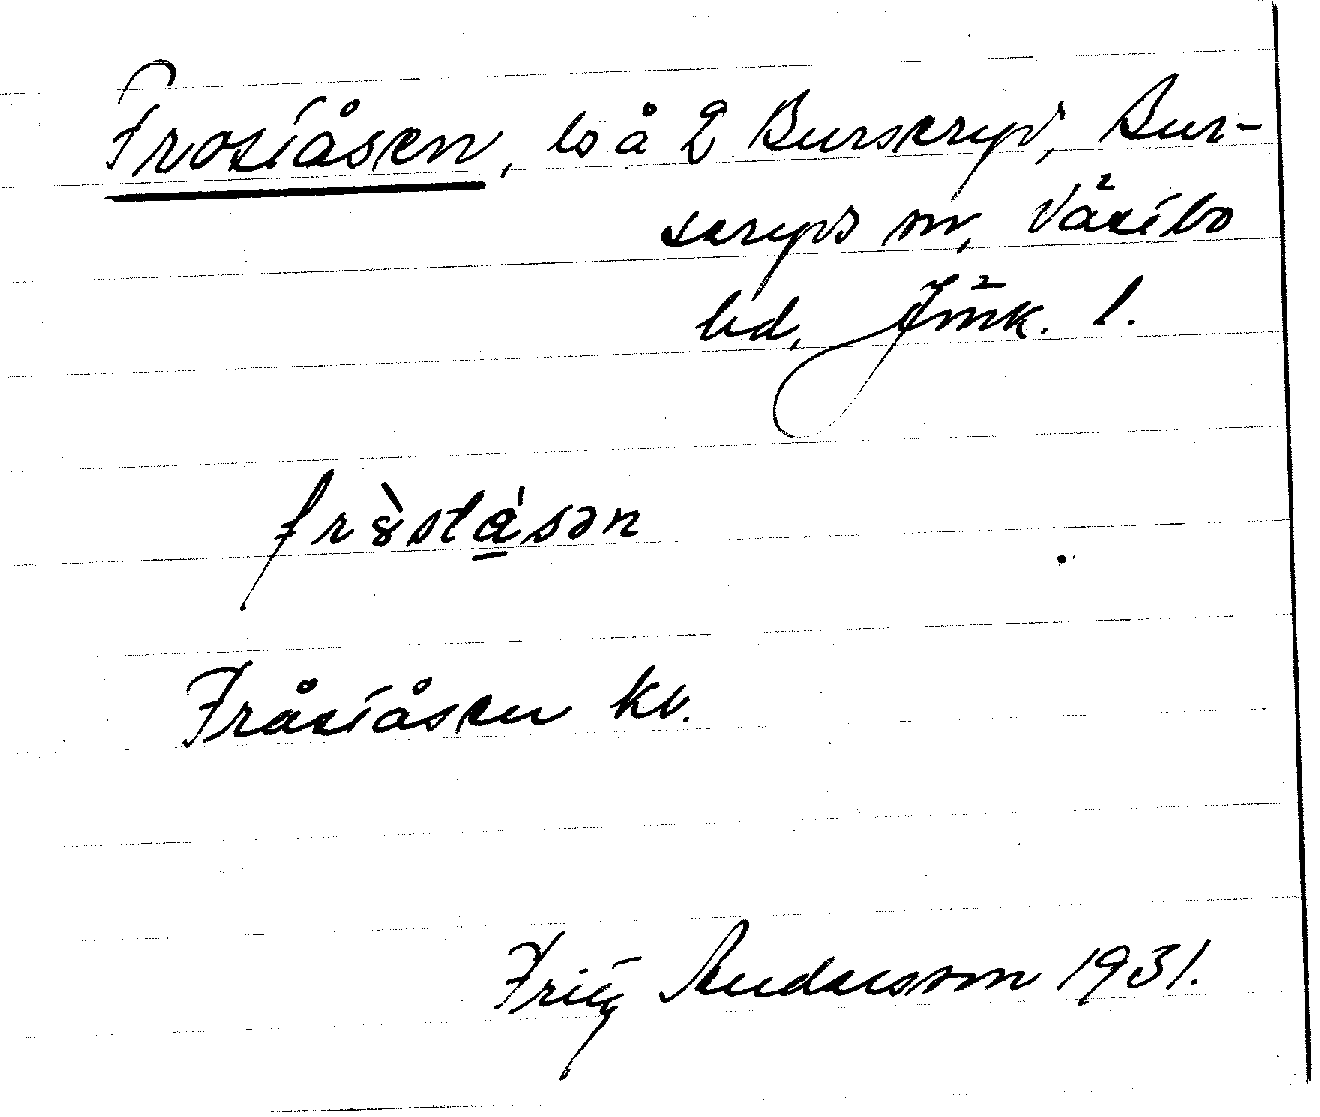 Froståsen, ls å 2 Burseryd, Bur-
seryds sn, Västbo
hd, Jönk. l.
frs̀stásən
Fråståsen kv.
Fritz Andersson 1931.